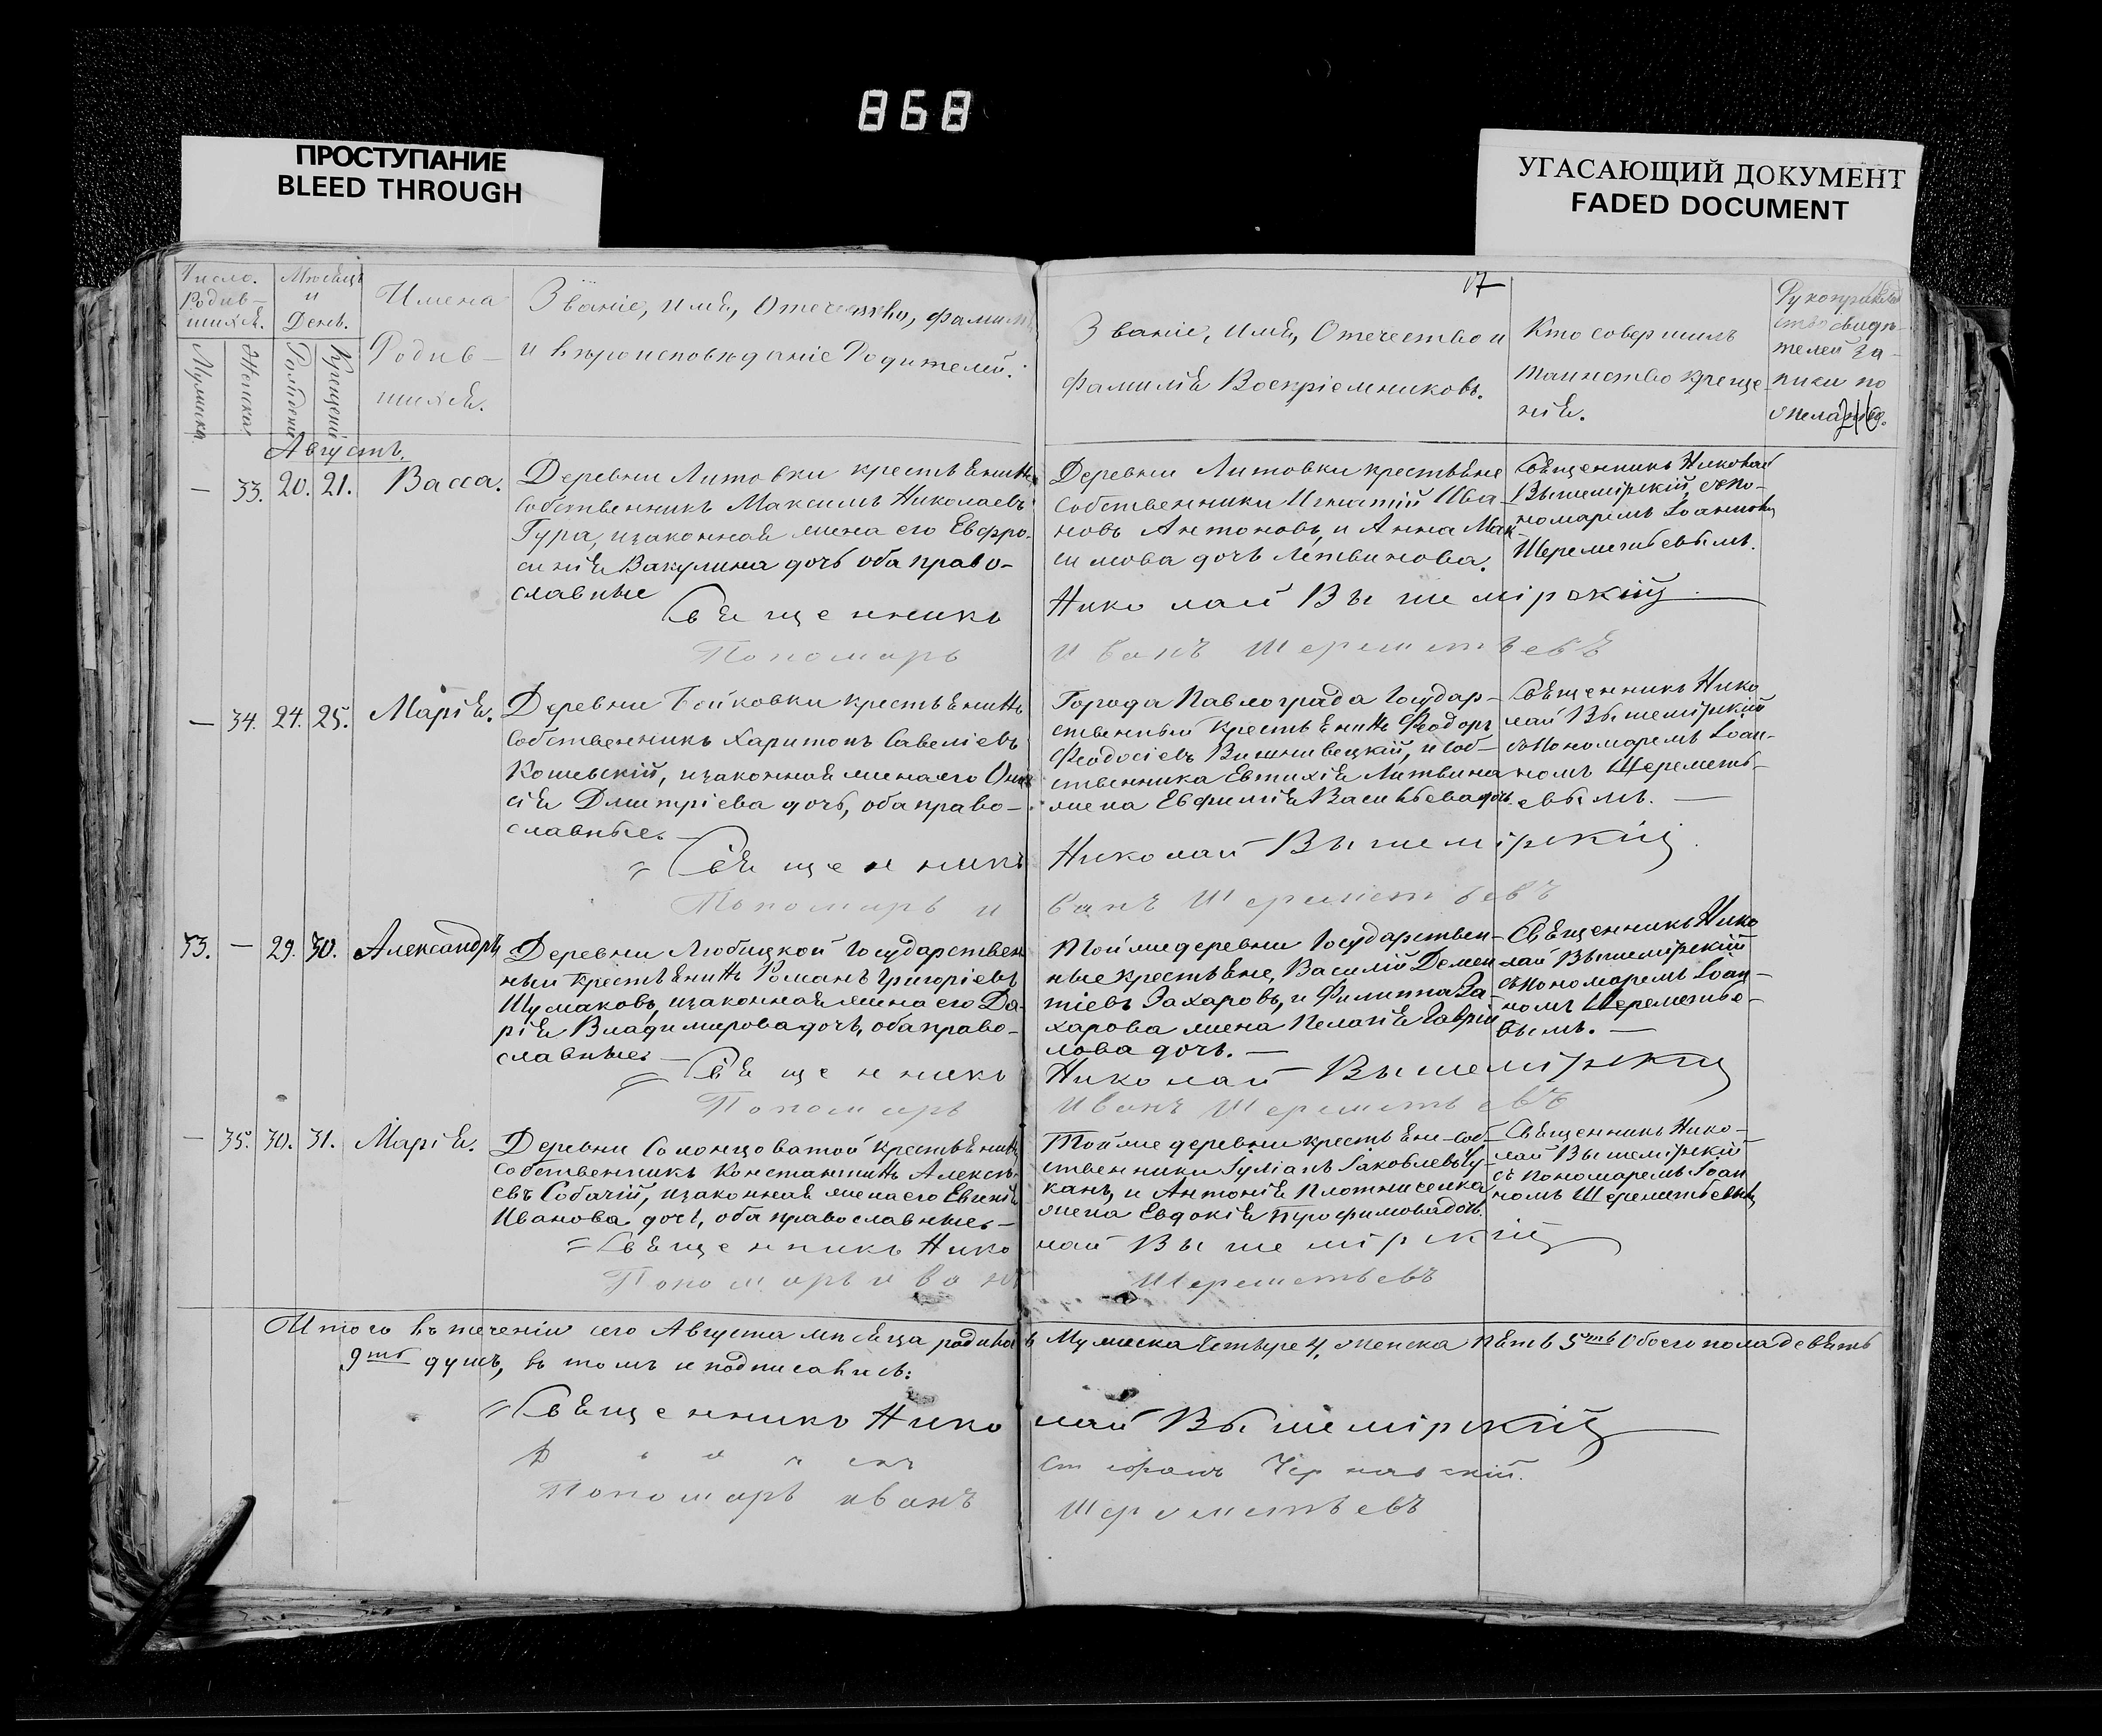 868
ПРОСТУПАНИЕ
BLEED THROUGH
УГАСАЮЩИЙ ДОКУМЕНТ
FADED DOCUMENT
Число Родив-шихся.
Мужеска
Женска
Мѣсяцъ и День.
Рожденія
Крещенія
Имена Родив-шихся.
Званіе, имя, Отечество, фамилія
и вѣроисповѣданіе Родителей.
17
Званіе, имя, Отечество и
фамилія Воспріемниковъ.
Кто совершилъ
таинство креще-
нія.
Рукоприклад
ство свидѣ-
телей за-
писи по
желанію.
216
Августъ.
— 33. 20. 21. Васса.
Деревни Литовки крестьянинъ
собственникъ Максимъ Николаевъ
Гура, и законная жена его Евфро-
синія Вакулина дочь оба право-
славные
Деревни Литовки крестьяне
собственники Игнатій Ива-
новъ Антоновъ, и Анна Мак
симова дочь Летвинова.
Священникъ Николай
Вышемірскій, съ по-
номаремъ Іоанномъ
Шереметьевымъ.
Священникъ Николай Вышемірскій
Пономарь Иванъ Шереметьевъ
— 34. 24. 25. Марія.
Деревни Бойковки крестьянинъ
собственникъ Харитонъ Савеліевъ
Кошевскій, и законная жена его
сія Дмитріева дочь, оба право-
славные. —
Города Павлограда Государ-
ственный крестьянинъ Ѳеодоръ
Ѳеодосіевъ Вишнивецкій, и соб-
ственника Евтихія Литвина
жена Евфимія Васильева дочь.
Священникъ Нико
лай Вышемірскій
съ Пономаремъ Іоан-
номъ Шереметь-
евымъ. —
Священникъ Николай Вышемірскій
Пономарь Иванъ Шереметьевъ
33. — 29. 30. Александръ
Деревни Любицкой Государствен
ный крестьянинъ Романъ Григоріевъ
Шумаковъ, и законная жена его Да-
рія Владимирова дочь, оба право-
славные. —
Той же деревни Государствен-
ные крестьяне, Василій Демен
тіевъ Захаровъ, и Филиппа За-
харова жена Пелагія Гаврии
лова дочь. —
Священникъ Нико
лай Вышемірскій
съ пономаремъ Іоан-
номъ Шереметье-
вымъ. —
Священникъ Николай Вышемірскій
Пономарь Иванъ Шереметьевъ
— 35. 30. 31. Марія.
Деревни Солонцоватой крестьянинъ
собственникъ Константинъ Алексѣ-
евъ Собачій, и законная жена его Евгенія
Иванова дочь, оба православные. —
Той же деревни крестьяне-соб-
ственники Іуліанъ Іаковлевъ Цу-
канъ, и Антонія Плотниченка
жена Евдокія Трофимова дочь.
Священникъ Нико-
лай Вышемірскій
съ пономаремъ Іоан
номъ Шереметьевымъ
Священникъ Николай Вышемірскій
Пономарь Иванъ Шереметьевъ
Итого въ теченіи сего Августа мѣсяца родилось Мужеска четыре 4, женска пять 5ть Обоего пола девять
9ть душъ, въ томъ и подписались:
Священникъ Николай Вышемірскій
Стефанъ Чернявскій.
Пономарь Иванъ Шереметьевъ